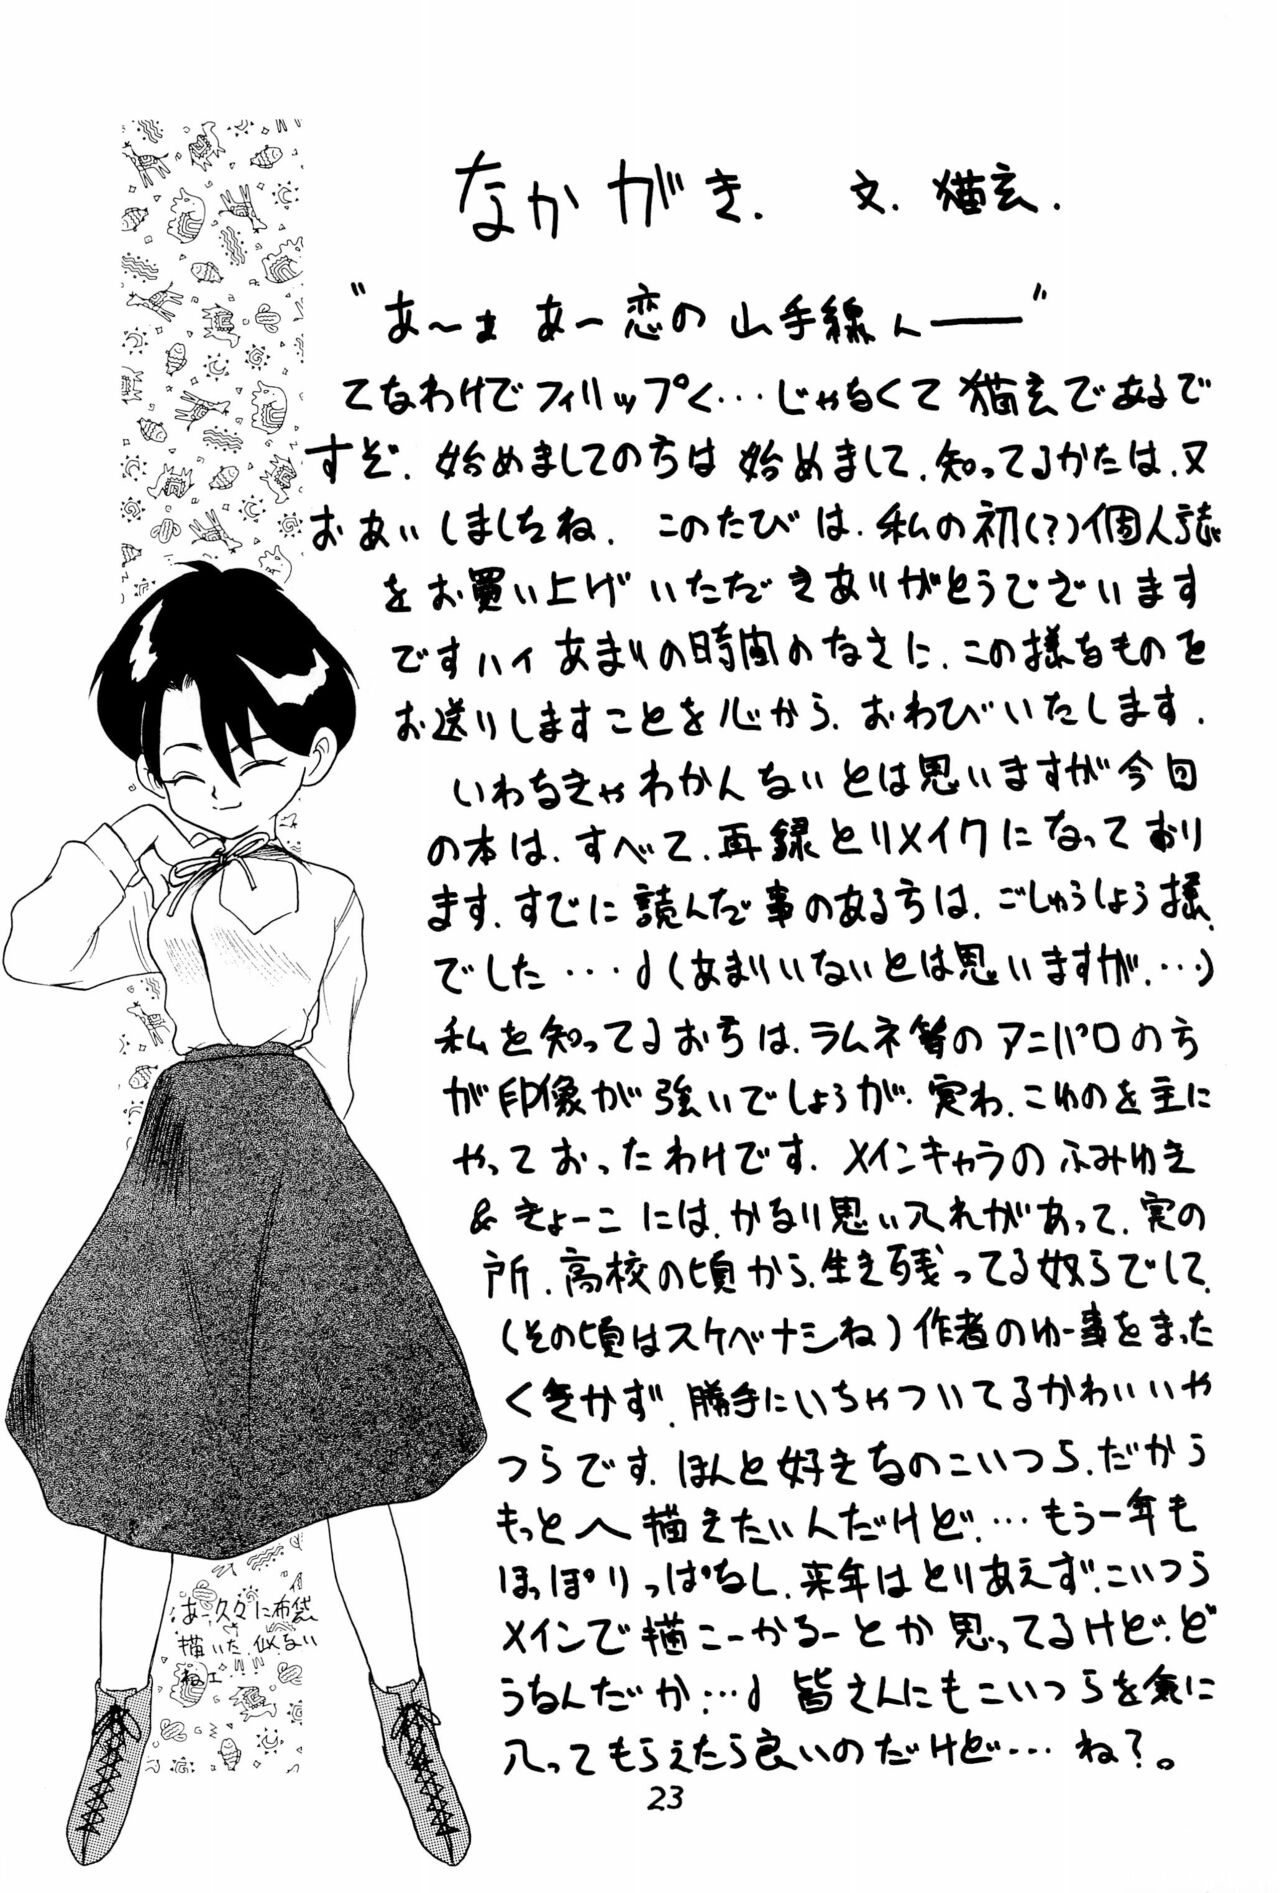 なかがき. 文. 猫玄.
"あ～ぁ あー恋の山手線ん――"
てなわけでフィリップく…じゃなくて猫玄であるで
すぞ. 始めましての方は始めまして. 知ってるかたは. 又
おあいしましたね. このたびは. 私の初(?)個人誌
をお買い上げいただきありがとうでございます
ですハイ あまりの時間のなさに. この様なものを
お送りしますことを心から. おわびいたします.
いわなきゃわかんないとは思いますが今回
の本は. すべて. 再録とリメイクになっており
ます. すでに読んだ事のある方は. ごしゅうしょう様.
でした…♩(あまりいないとは思いますが.…)
私を知ってるお方は. ラムネ等のアニパロの方
が印象が強いでしょうが. 実わ. こゆのを主に
やっておったわけです. メインキャラのふみゆき
&きょーこには. かなり思い入れがあって. 実の
所. 高校の頃から. 生き残ってる奴らでして.
(その頃はスケベナシね)作者のゆー事をまった
くきかず. 勝手にいちゃついてるかわいいや
つらです. ほんと好きなのこいつら. だから
もっとへ描きたいんだけど.…もう一年も
ほっぽりっぱなし. 来年はとりあえず. こいつら
メインで描こーかなーとか思ってるけど. ど
うなんだか…♩ 皆さんにもこいつらを気に
入ってもらえたら良いのだけど…ね?。
あー久々に布袋
描いた. 似ない
ねェ
23